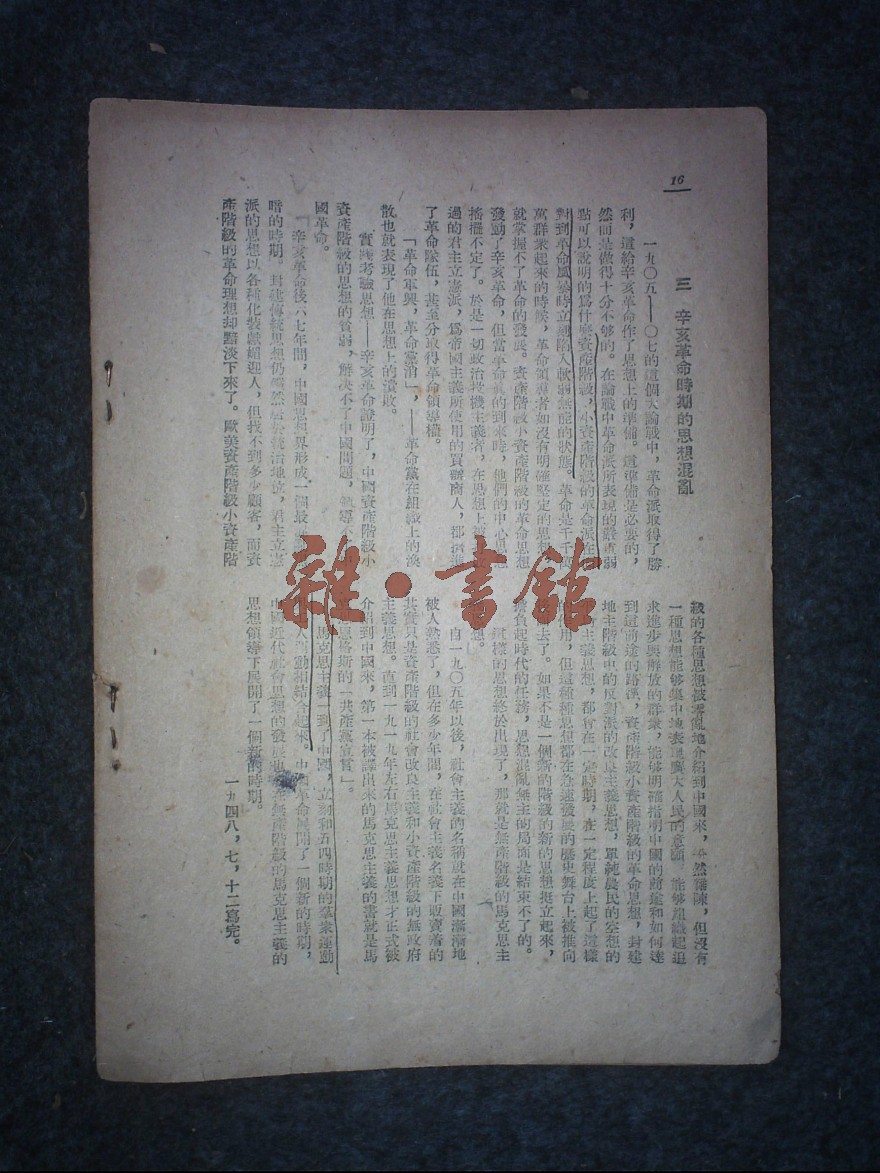 16
三　辛亥革命時期的思想混亂
一九〇五——〇七的這個大論戰中，革命派取得了勝
利，這給辛亥革命作了思想上的準備。這準備是必要的，
然而是做得十分不够的。在論戰中革命派所表現的嚴重弱
點可以說明的爲什麼資產階級，小資產階級的革命派在
對到革命風暴時立刻陷入軟弱無能的狀態。革命是千千萬
萬群衆起來的時候，革命領導者如沒有明確堅定的思想
就掌握不了革命的發展。資產階級小資產階級的革命思想
發動了辛亥革命，但當革命真的到來時，他們的中心思想
搖擺不定了。於是一切政治投機主義者，在思想上
過的君主立憲派，爲帝國主義所使用的買辦商人，都
了革命隊伍，甚至分取得革命領導權。
「革命軍興，革命黨消」，——革命黨在組織上的渙
散也就表現了他在思想上的潰敗。
實踐考驗思想——辛亥革命證明了，中國資產階級小
資產階級的思想的貧弱，解決不了中國問題，
國革命。
「辛亥革命後六七年間，中國思想界形成一個最
暗的時期。封建傳統思想仍舊然居於統治地位，君主立憲
派的思想以各種化裝戲媚迎人，但找不到多少顧客，而資
產階級的革命理想却黯淡下來了。歐美資產階級小資產階
級的各種思想被凌亂地介紹到中國來，紛然雜陳，但沒有
一種思想能够集中地表現廣大人民的意願，能够組織起追
求進步與解放的群衆，能够明確指明中國的前途和如何達
到這前途的路線，資產階級小資產階級的革命思想，封建
地主階級中的反對派的改良主義思想，單純農民的空想的
主義思想，都曾在一定時期，在一定程度上起了這樣
作用，但這種種思想都在急速發展的歷史舞台上被推向
去了。如果不是一個新的階級的新的思想挺立起來，
擔負起時代的任務，思想混亂無主的局面是結束不了的。
這樣的思想終於出現了，那就是無產階級的馬克思主
思想。
自一九〇五年以後，社會主義的名稱就在中國漸漸地
被人熟悉了，但在多少年間，在社會主義名義下販賣著的
其實只是資產階級的社會改良主義和小資產階級的無政府
主義思想。直到一九一九年左右馬克思主義思想才正式被
介紹到中國來，第一本被譯出來的馬克思主義的書就是馬
恩格斯的「共產黨宣言」。
馬克思主義一到了中國，立刻和五四時期的羣衆運動
工人運動相結合起來。中國革命展開了一個新的時期，
中國近代社會思想的發展也在無產階級的馬克思主義的
思想領導下展開了一個新的時期。
一九四八，七，十二寫完。
雜·書館